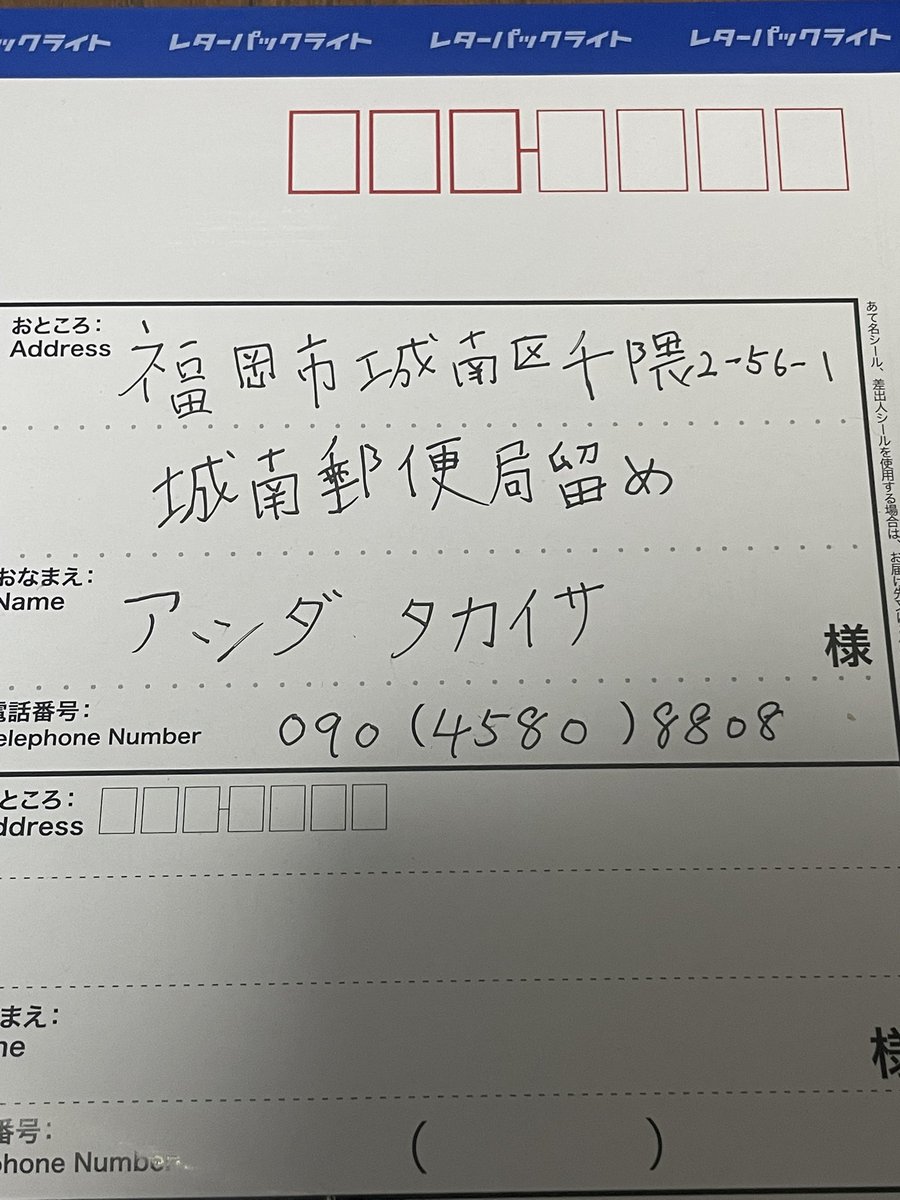 ックライト レターパックライト レターパックライト レターパックライト
おところ:
Address
福岡市城南区千隈2-56-1
城南郵便局留め
おなまえ:
Name
アンダ タカイサ
様
電話番号:
elephone Number
090(4580)8808
ところ:
ddress
まえ:
me
様
番号:
phone Number
( )
あて名シール、差出人シールを使用する場合は、お届け先